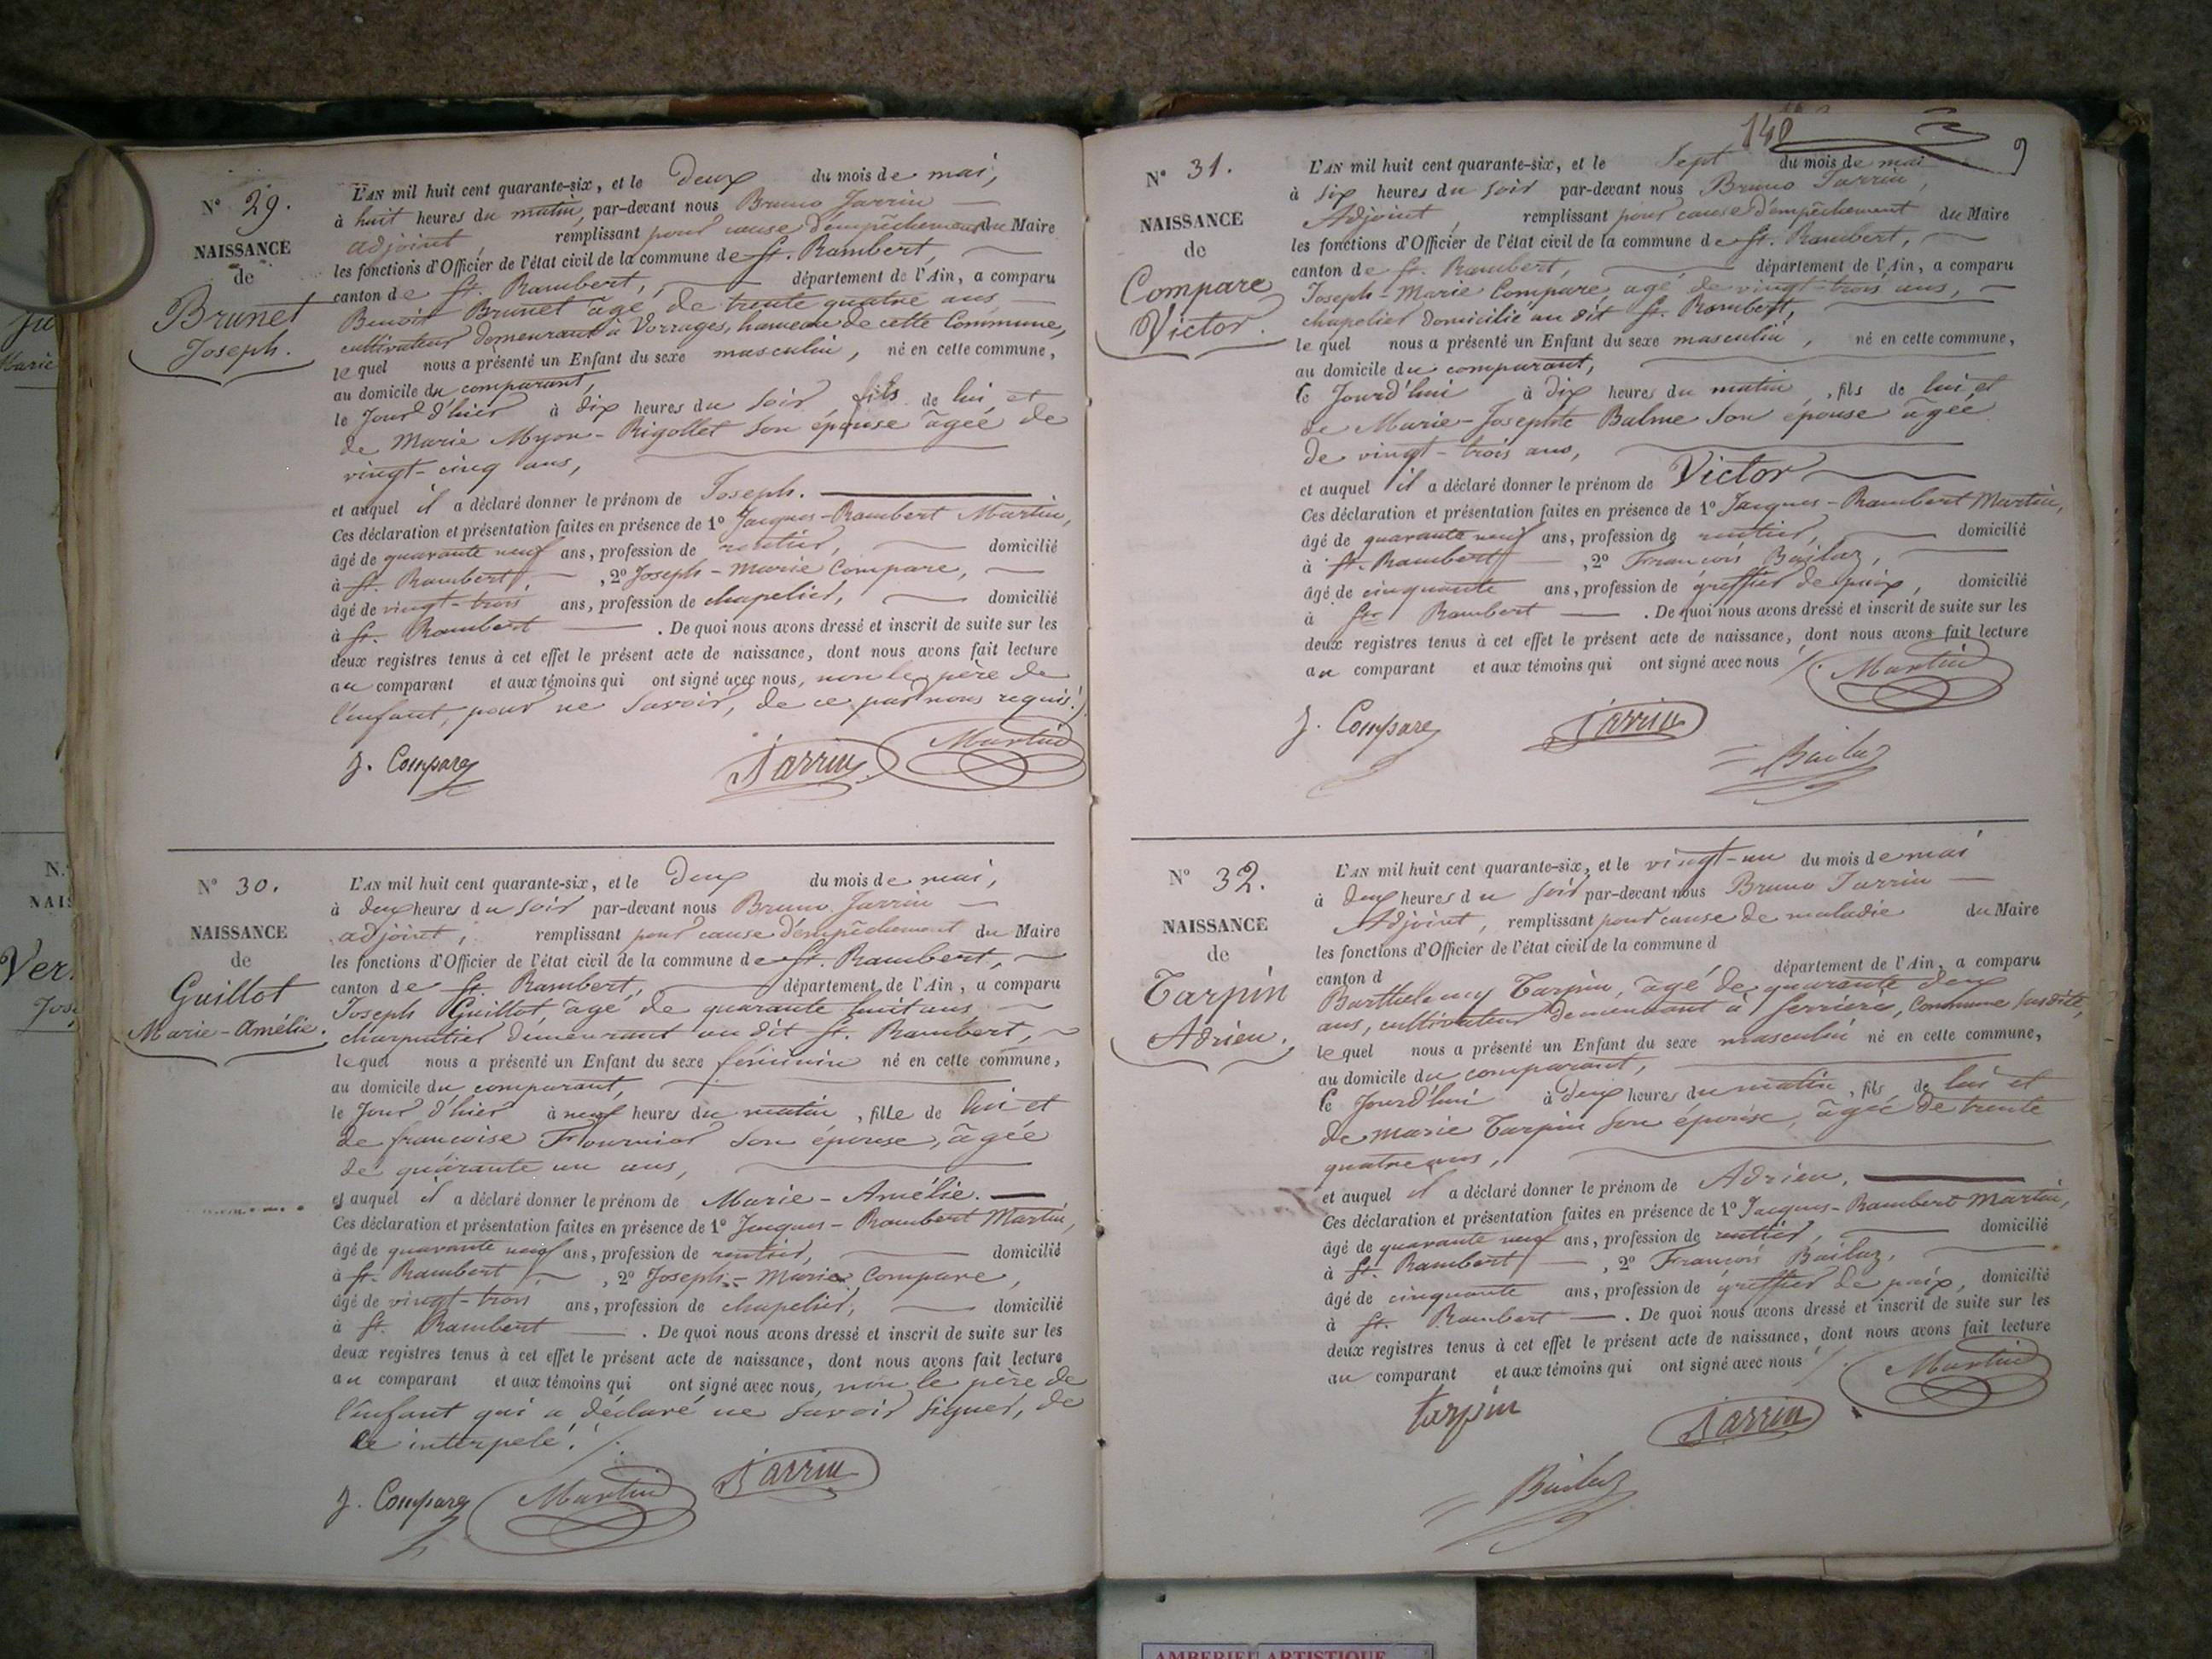 N° 29.
NAISSANCE
de
Brunet
Joseph.
L'AN mil huit cent quarante-six, et le Deux du mois de mai,
à huit heures du matin, par-devant nous Bruno Jarrin
adjoint, remplissant pour cause d'empêchement du Maire
les fonctions d'Officier de l'état civil de la commune de St. Rambert,
canton de St. Rambert, département de l'Ain, a comparu
Benoit Brunet âgé de trente quatre ans
cultivateur demeurant à Vorrages, hameau de cette Commune,
lequel nous a présenté un Enfant du sexe masculin, né en cette commune,
au domicile du comparant,
le Jour d'hier à dix heures du soir, fils de lui et
de Marie Myon-Rigollet son épouse âgée de
vingt-cinq ans,
et auquel il a déclaré donner le prénom de Joseph.
Ces déclaration et présentation faites en présence de 1° Jacques-Rambert Martin,
âgé de quarante neuf ans, profession de rentier, domicilié
à St. Rambert, , 2° Joseph-Marie Compare,
âgé de vingt-trois ans, profession de chapelier, domicilié
à St. Rambert . De quoi nous avons dressé et inscrit de suite sur les
deux registres tenus à cet effet le présent acte de naissance, dont nous avons fait lecture
au comparant et aux témoins qui ont signé avec nous, non le père de
l'enfant, pour ne savoir, de ce par nous requis.
J. Compare Jarrin Martin
N° 30.
NAISSANCE
de
Guillot
Marie-Amélie.
L'AN mil huit cent quarante-six, et le Deux du mois de mai,
à deux heures du soir par-devant nous Bruno Jarrin
adjoint, remplissant pour cause d'empêchement du Maire
les fonctions d'Officier de l'état civil de la commune de St. Rambert,
canton de St. Rambert, département de l'Ain, a comparu
Joseph Guillot âgé de quarante huit ans
charpentier demeurant au dit St. Rambert,
lequel nous a présenté un Enfant du sexe féminin né en cette commune,
au domicile du comparant,
le Jour d'hier à neuf heures du matin, fille de lui et
de françoise Fournier son épouse, âgée
de quarante un ans,
et auquel il a déclaré donner le prénom de Marie-Amélie.
Ces déclaration et présentation faites en présence de 1° Jacques-Rambert Martin,
âgé de quarante neuf ans, profession de rentier, domicilié
à St. Rambert, , 2° Joseph-Marie Compare,
âgé de vingt-trois ans, profession de chapelier, domicilié
à St. Rambert . De quoi nous avons dressé et inscrit de suite sur les
deux registres tenus à cet effet le présent acte de naissance, dont nous avons fait lecture
au comparant et aux témoins qui ont signé avec nous, non le père de
l'enfant qui a déclaré ne savoir signer, de
ce interpelé.
J. Compare Martin Jarrin
140
N° 31.
NAISSANCE
de
Compare
Victor.
L'AN mil huit cent quarante-six, et le Sept du mois de mai
à six heures du soir par-devant nous Bruno Jarrin,
Adjoint, remplissant pour cause d'empêchement du Maire
les fonctions d'Officier de l'état civil de la commune de St. Rambert,
canton de St. Rambert, département de l'Ain, a comparu
Joseph-Marie Compare, âgé de vingt-trois ans,
chapelier domicilié au dit St. Rambert,
lequel nous a présenté un Enfant du sexe masculin, né en cette commune,
au domicile du comparant,
le Jourd'hui à dix heures du matin, fils de lui et
de Marie-Josephte Balme son épouse âgée
de vingt-trois ans,
et auquel il a déclaré donner le prénom de Victor
Ces déclaration et présentation faites en présence de 1° Jacques-Rambert Martin,
âgé de quarante neuf ans, profession de rentier, domicilié
à St. Rambert , 2° François Bailaz,
âgé de cinquante ans, profession de greffier de paix, domicilié
à St. Rambert . De quoi nous avons dressé et inscrit de suite sur les
deux registres tenus à cet effet le présent acte de naissance, dont nous avons fait lecture
au comparant et aux témoins qui ont signé avec nous Martin
J. Compare Jarrin
Bailaz
N° 32.
NAISSANCE
de
Tarpin
Adrien.
L'AN mil huit cent quarante-six, et le vingt-un du mois de mai
à deux heures du soir par-devant nous Bruno Jarrin
Adjoint, remplissant pour cause de maladie du Maire
les fonctions d'Officier de l'état civil de la commune d
canton d département de l'Ain, a comparu
Barthelemy Tarpin, âgé de quarante deux
ans, cultivateur demeurant à Serrière, Commune susdite,
lequel nous a présenté un Enfant du sexe masculin né en cette commune,
au domicile du comparant,
le Jourd'hui à deux heures du matin, fils de lui et
de Marie Tarpin son épouse, âgée de trente
quatre ans,
et auquel il a déclaré donner le prénom de Adrien,
Ces déclaration et présentation faites en présence de 1° Jacques-Rambert Martin,
âgé de quarante neuf ans, profession de rentier, domicilié
à St. Rambert , 2° François Bailaz,
âgé de cinquante ans, profession de greffier de paix, domicilié
à St. Rambert . De quoi nous avons dressé et inscrit de suite sur les
deux registres tenus à cet effet le présent acte de naissance, dont nous avons fait lecture
au comparant et aux témoins qui ont signé avec nous Martin
tarpin Jarrin
Bailaz
AMBERIEU ARTISTIQUE